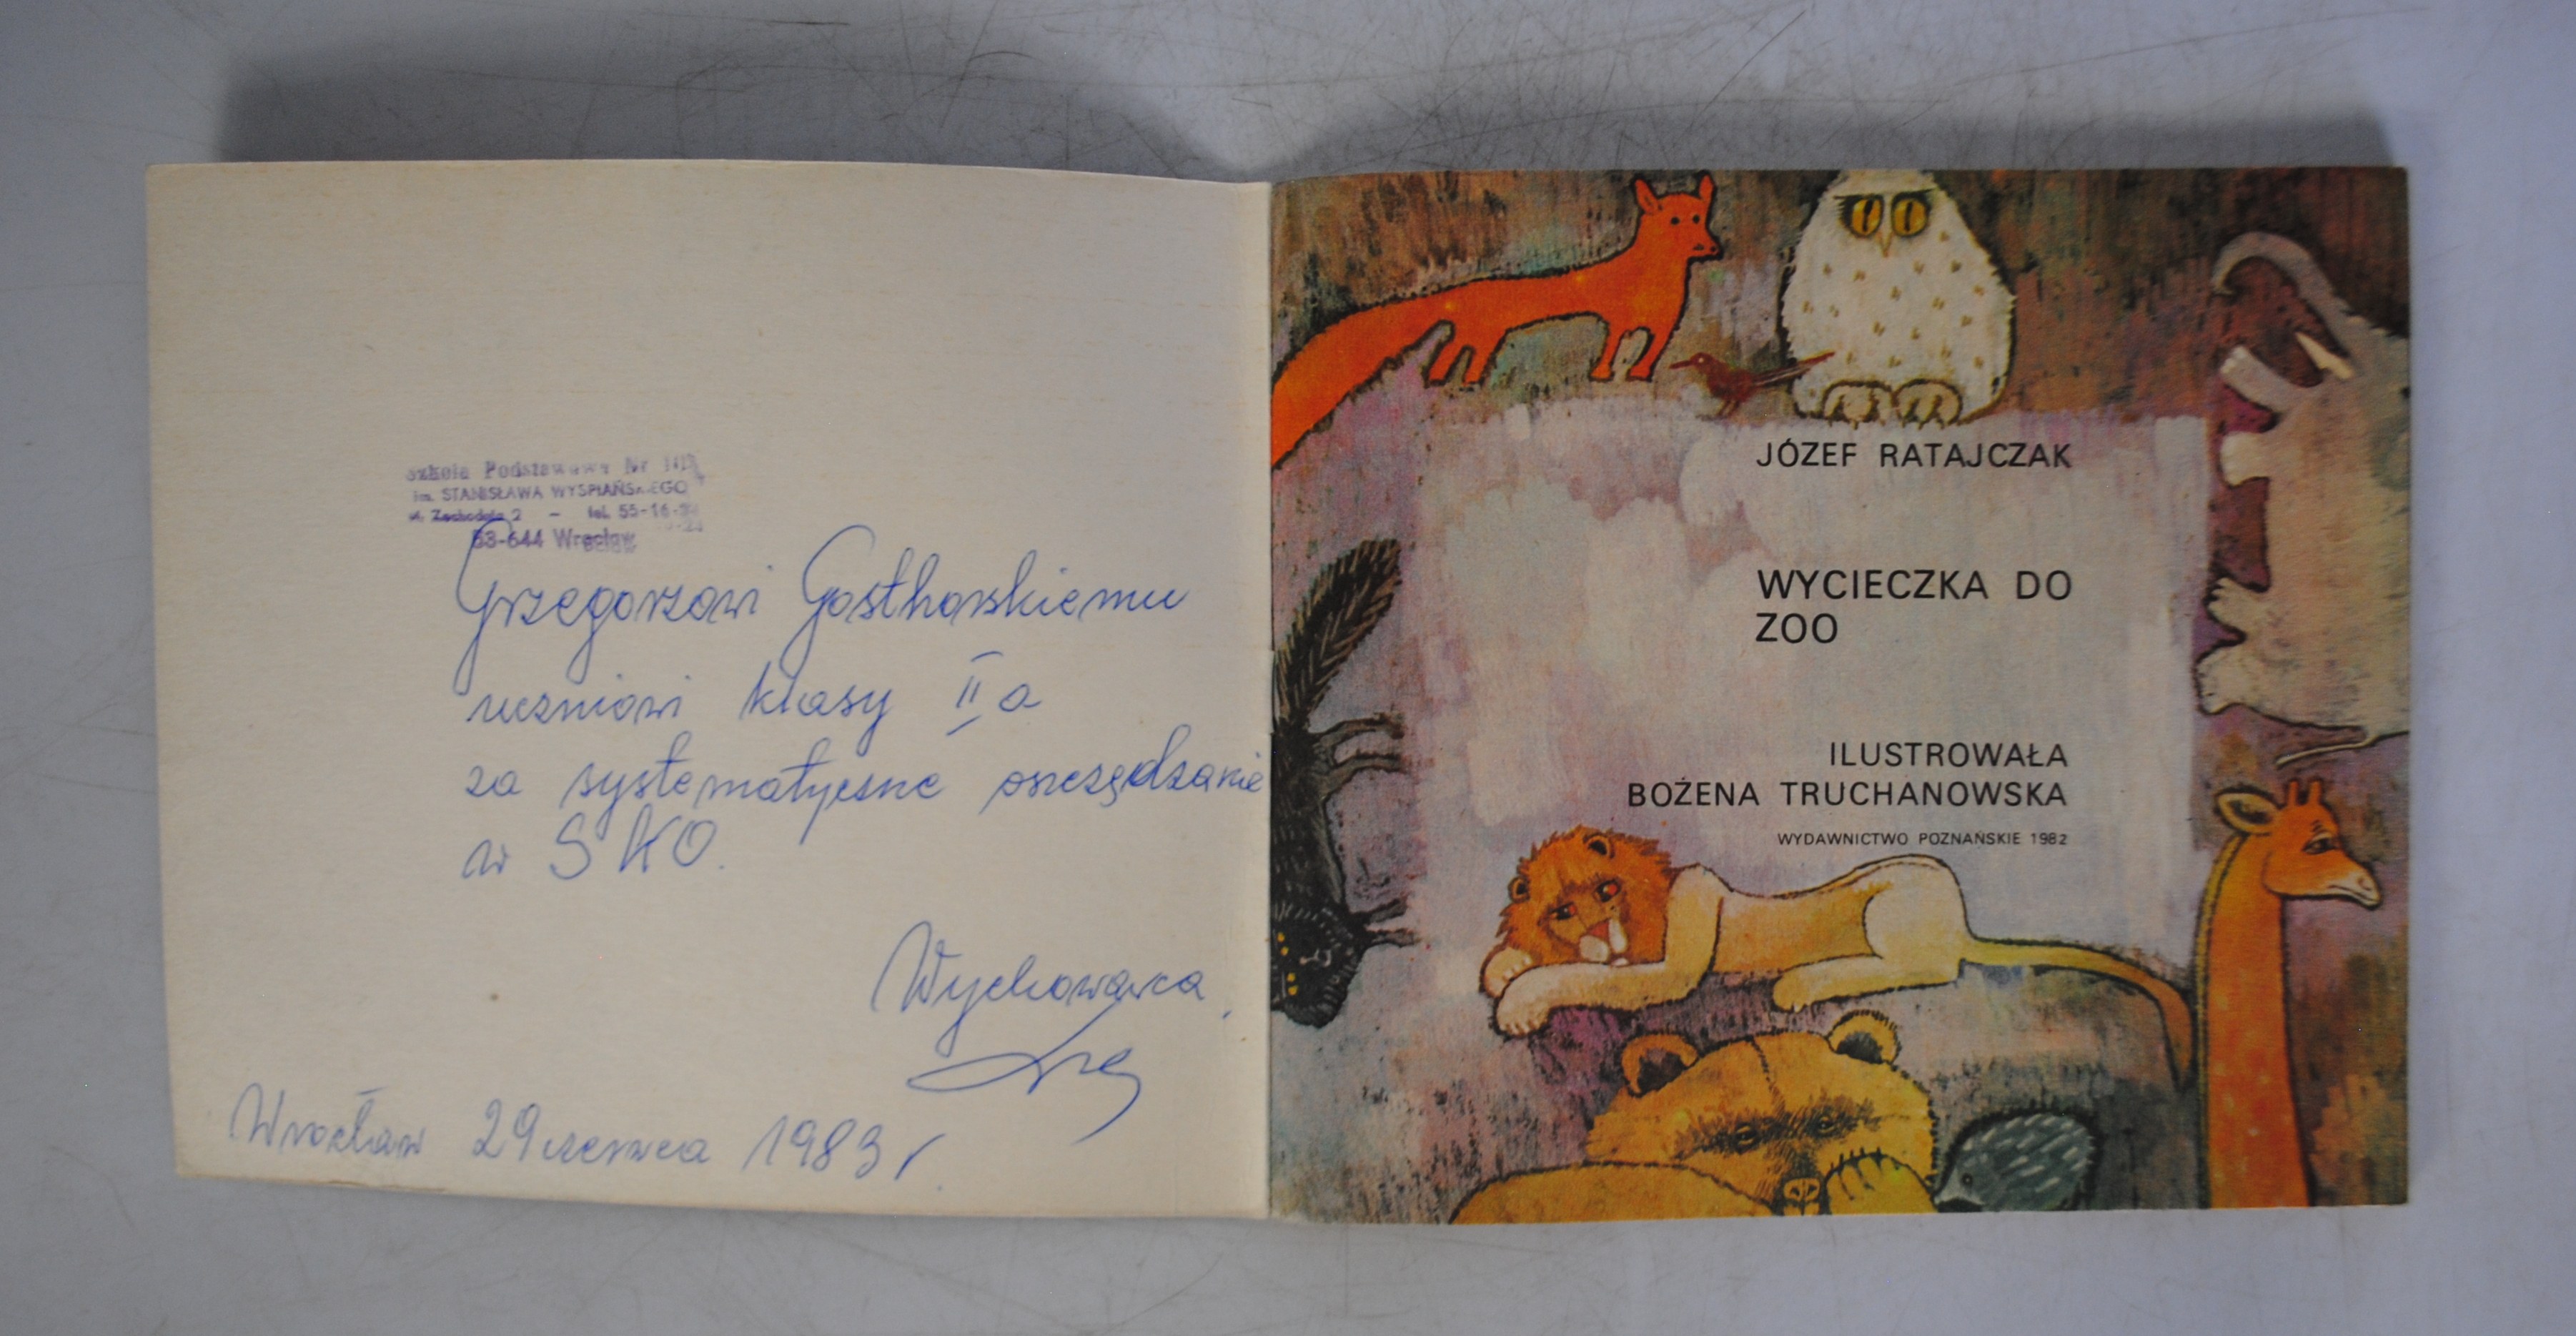 Szkoła Podstawowa Nr
im. STANISŁAWA WYSPIAŃSKIEGO
ul. Zachodnia 2 - tel. 55-16-
53-644 Wrocław
Grzegorzowi Gosthorskiemu
uczniowi klasy II a
za systematyczne oszczędzanie
w SKO.
Wychowawca
Wrocław 29 czerwca 1983 r.
JÓZEF RATAJCZAK
WYCIECZKA DO
ZOO
ILUSTROWAŁA
BOŻENA TRUCHANOWSKA
WYDAWNICTWO POZNAŃSKIE 1982